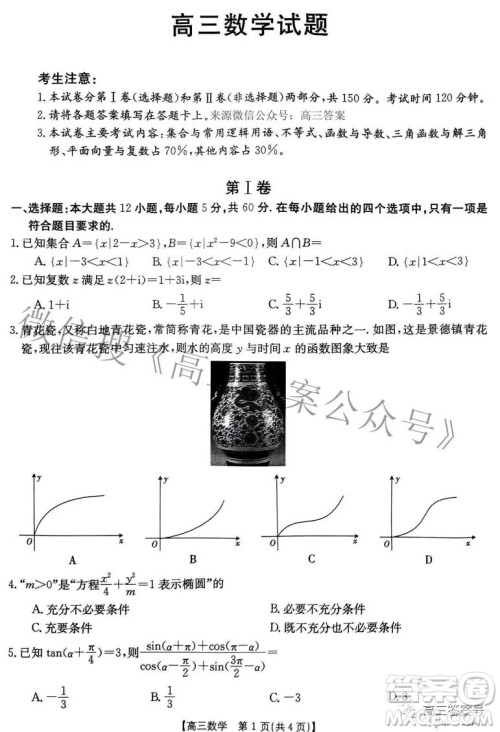 高三数学试题
考生注意:
1.本试卷分第Ⅰ卷(选择题)和第Ⅱ卷(非选择题)两部分,共150分。考试时间120分钟。
2.请将各题答案填写在答题卡上。来源微信公众号:高三答案
3.本试卷主要考试内容:集合与常用逻辑用语、不等式、函数与导数、三角函数与解三角
形、平面向量与复数占70%,其他内容占30%。
第Ⅰ卷
一、选择题:本大题共12小题,每小题5分,共60分.在每小题给出的四个选项中,只有一项是
符合题目要求的.
1.已知集合A={x|2-x>3},B={x|x²-9<0},则A∩B=
A.{x|-3<x<1} B.{x|x<-3} C.{x|-3<x<-1} D.{x|x<3}
2.已知复数z满足z(2+i)=1+3i,则z=
A.1+i B.-1/5+i C.5/3+5/3i D.1/5+i
3.青花瓷,又称白地青花瓷,常简称青花,是中国瓷器的主流品种之一.如图,这是景德镇青花
瓷,现往该青花瓷中匀速注水,则水的高度y与时间x的函数图象大致是
y x y x y x y x
A B C D
4.“m>0”是“方程x²/4+y²/m=1表示椭圆”的
A.充分不必要条件 B.必要不充分条件
C.充要条件 D.既不充分也不必要条件
5.已知tan(α+π/4)=3,则sin(α+π)+cos(π-α)/cos(α-π/2)+sin(3π/2-α)=
A.-1/3 B.1/3 C.-3 D.3
【高三数学 第1页(共4页)】
微信搜《高三答案公众号》
高三答案号